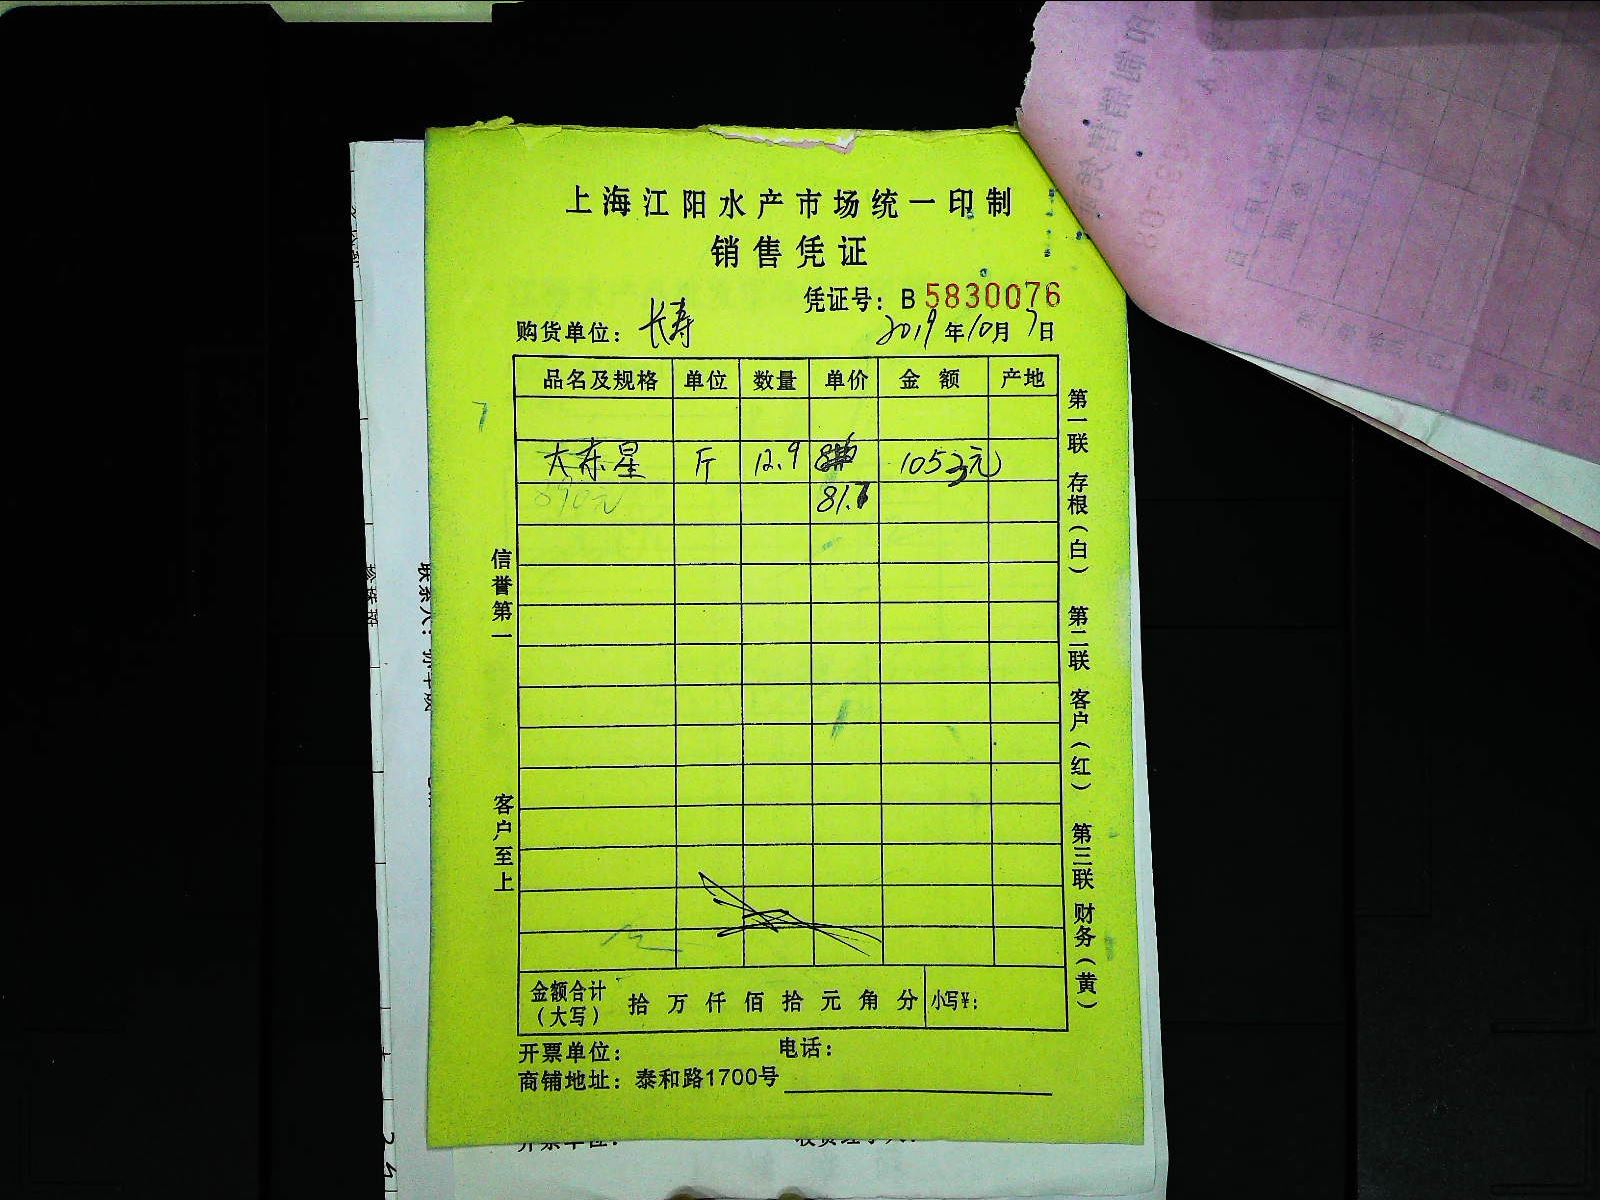 上海江阳水产市场统一印制
销售凭证
凭证号：B 5830076
购货单位：长寿 2019年10月7日
品名及规格 单位 数量 单价 金额 产地
大东星 斤 12.9 1053元
890元 81.7
信誉第一
客户至上
第一联 存根（白） 第二联 客户（红） 第三联 财务（黄）
金额合计（大写） 拾 万 仟 佰 拾 元 角 分 小写¥：
开票单位： 电话：
商铺地址：泰和路1700号
联系人：
开票单位：